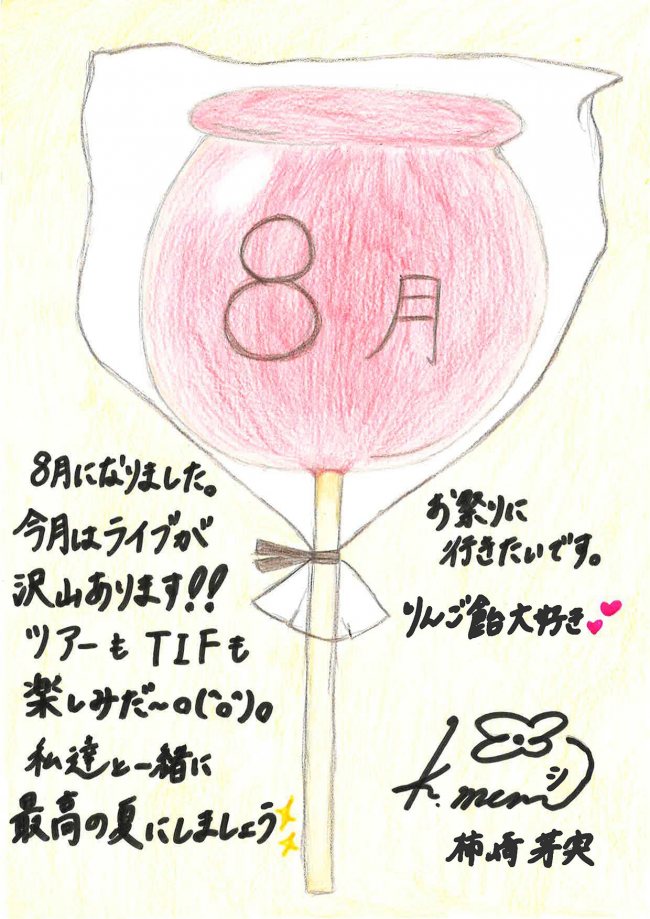 8月
8月になりました。
今月はライブが
沢山あります!!
ツアーもTIFも
楽しみだ〜o(^o^)o
私達と一緒に
最高の夏にしましょう
お祭りに
行きたいです。
りんご飴大好き
k.memi
柿崎芽実